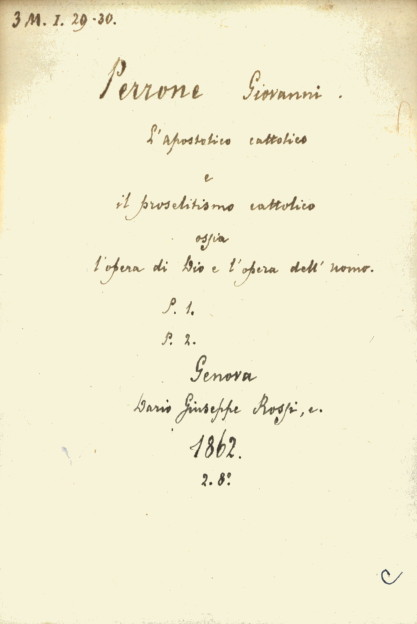 3 M. I. 29-30.
Perrone Giovanni.
L'Apostolico cattolico
e
il proselitismo cattolico
ossia
l'opera di Dio e l'opera dell' uomo.
P. 1.
P. 2.
Genova
Dario Giuseppe Rossi, e.
1862.
2. 8º
C